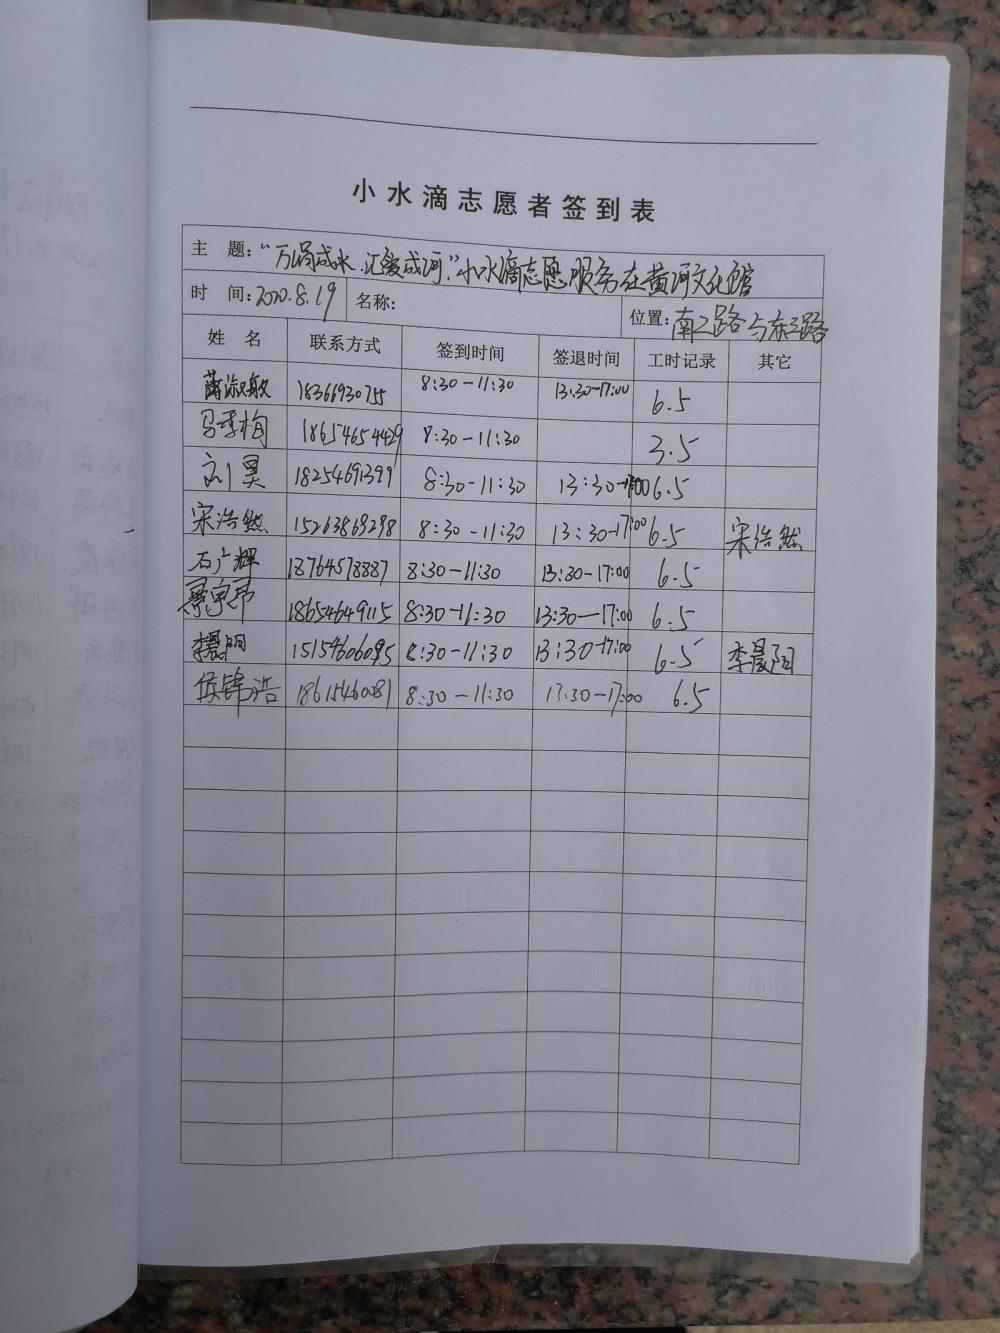 小水滴志愿者签到表
主 题：“万涓成水.汇爱成河.”小水滴志愿服务在黄河文化馆
时 间：2020.8.19 名称： 位置：南二路与东三路
姓 名 联系方式 签到时间 签退时间 工时记录 其它
蒋淑敏 18366930755 8:30-11:30 13:30-17:00 6.5
马季梅 18654654429 8:30-11:30 3.5
刘昊 18254691399 8:30-11:30 13:30-17:00 6.5
宋浩然 15263869298 8:30-11:30 13:30-17:00 6.5 宋浩然
石广辉 18764578887 8:30-11:30 13:30-17:00 6.5
18654649115 8:30-11:30 13:30-17:00 6.5
李晨阳 15154606095 8:30-11:30 13:30-17:00 6.5 李晨阳
侯锦浩 18615460081 8:30-11:30 13.30-17:00 6.5